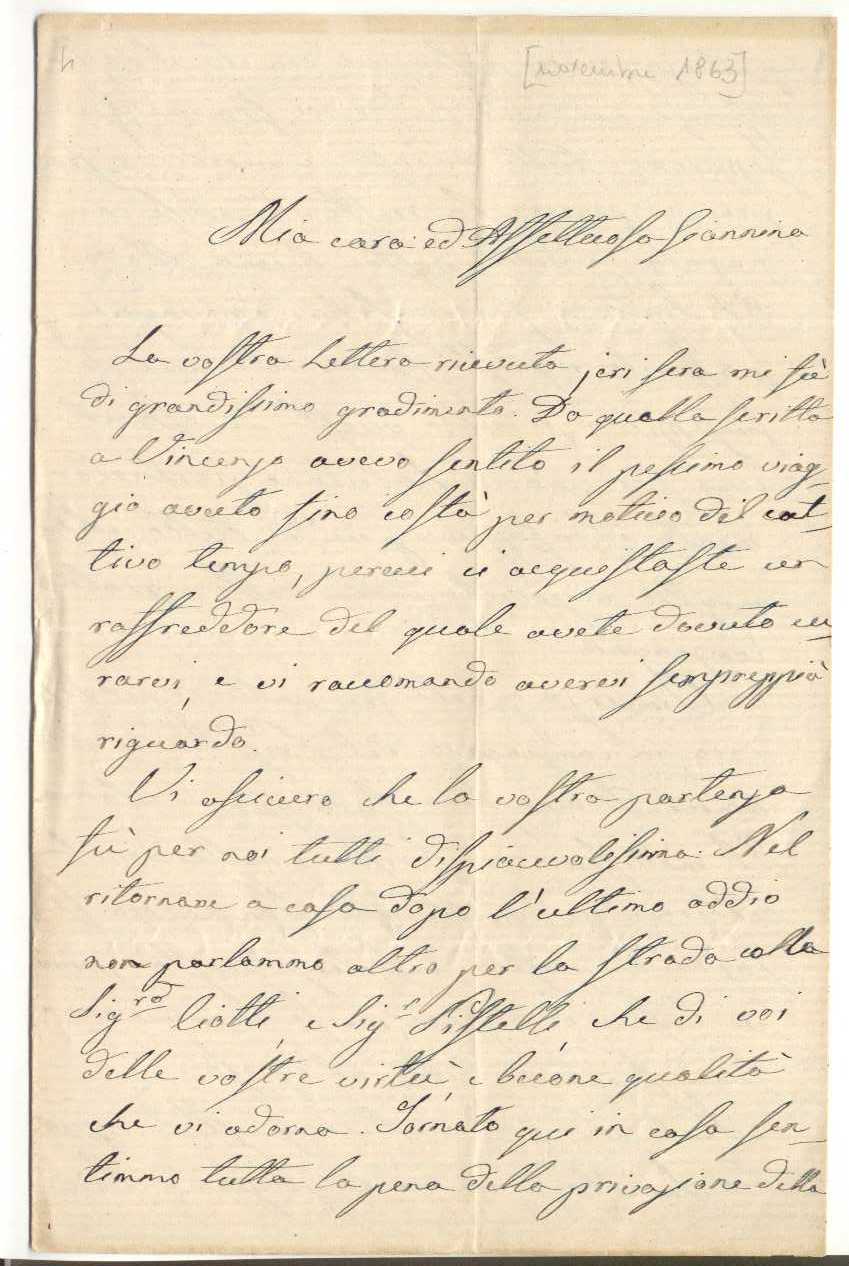 4
[novembre 1863]
Mia cara ed Affettuosa Giannina
La vostra Lettera ricevuta jeri sera mi fù
di grandissimo gradimento. Da quella scritta
a Vincenzo avevo sentito il pessimo viag-
gio avuto fino costà per motivo del cat-
tivo tempo, percui ci acquistaste un
raffreddore del quale avete dovuto cu-
rarvi, e vi raccomando avervi semprepppiù
riguardo.
Vi assicuro che la vostra partenza
fù per noi tutti dispiacevolissima. Nel
ritornare a casa dopo l'ultimo addio
non parlammo altro per la strada colla
Sig.ra Liotti, e Sig.r Pistelli, che di voi
delle vostre virtù, e buone qualità
che vi adorna. Tornato qui in casa sen-
timmo tutta la pena della privazione della